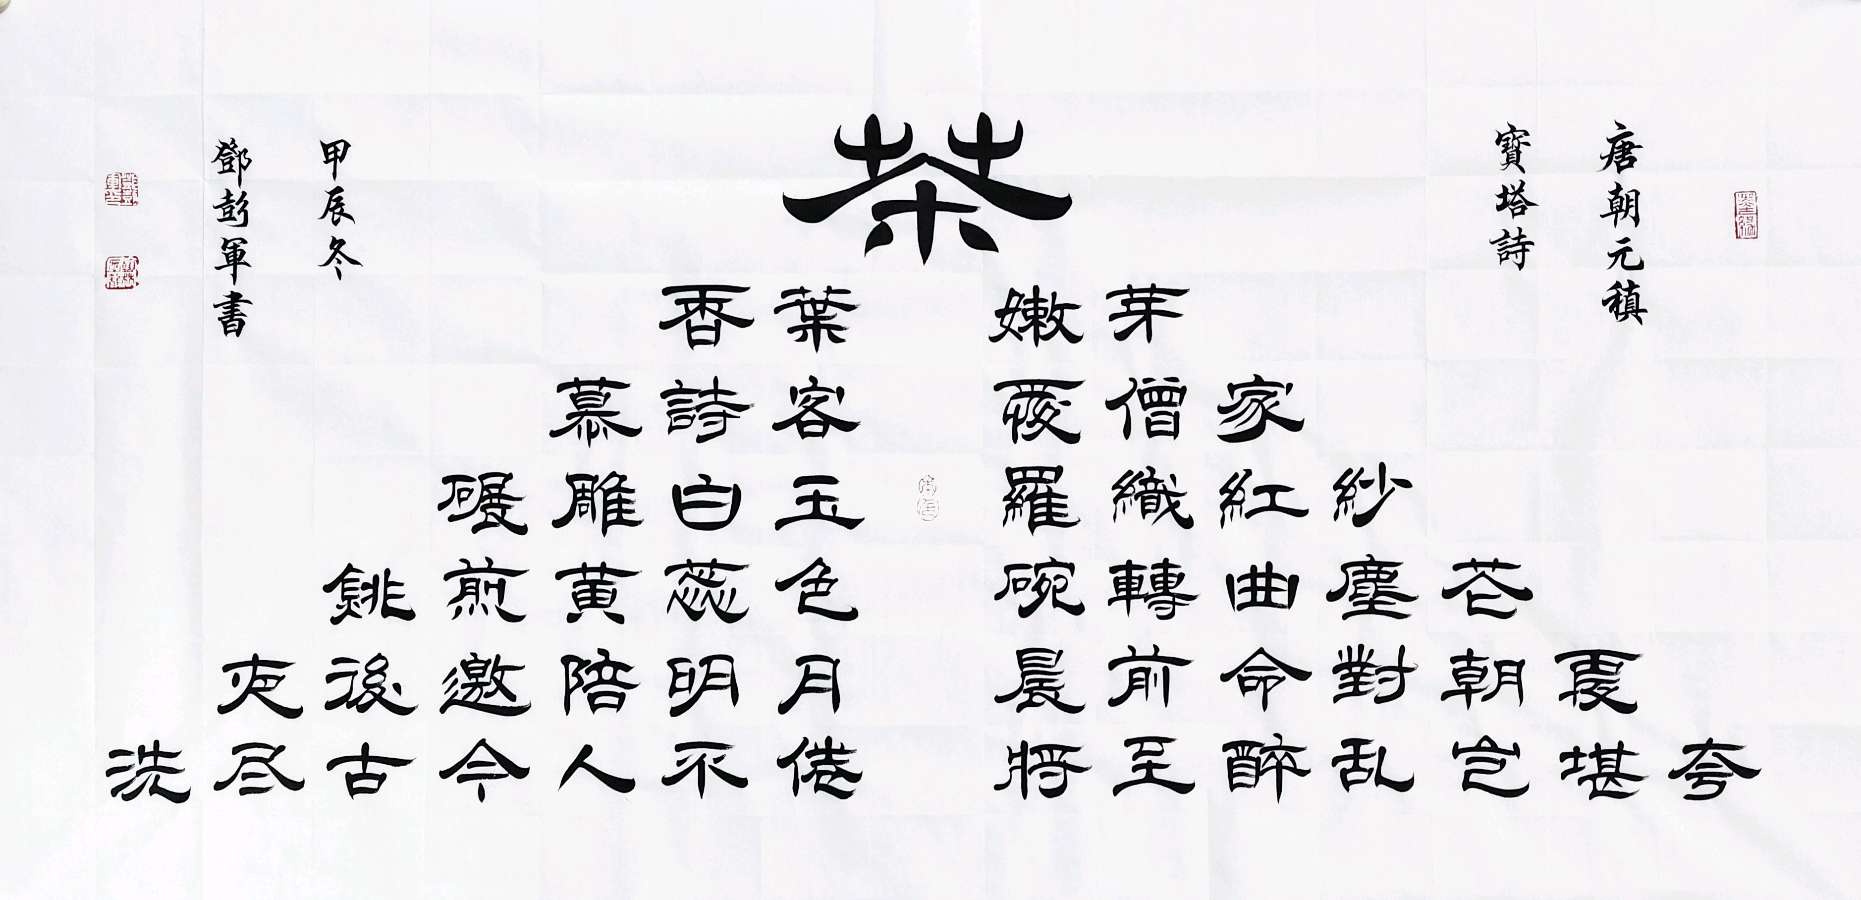 唐朝元稹
寶塔詩
茶
香葉 嫩芽
慕詩客 愛僧家
碾雕白玉 羅織紅紗
銚煎黄蕊色 碗轉曲塵花
夜後邀陪明月 晨前命對朝霞
洗尽古今人不倦 將至醉乱豈堪夸
甲辰冬
鄧彭軍書